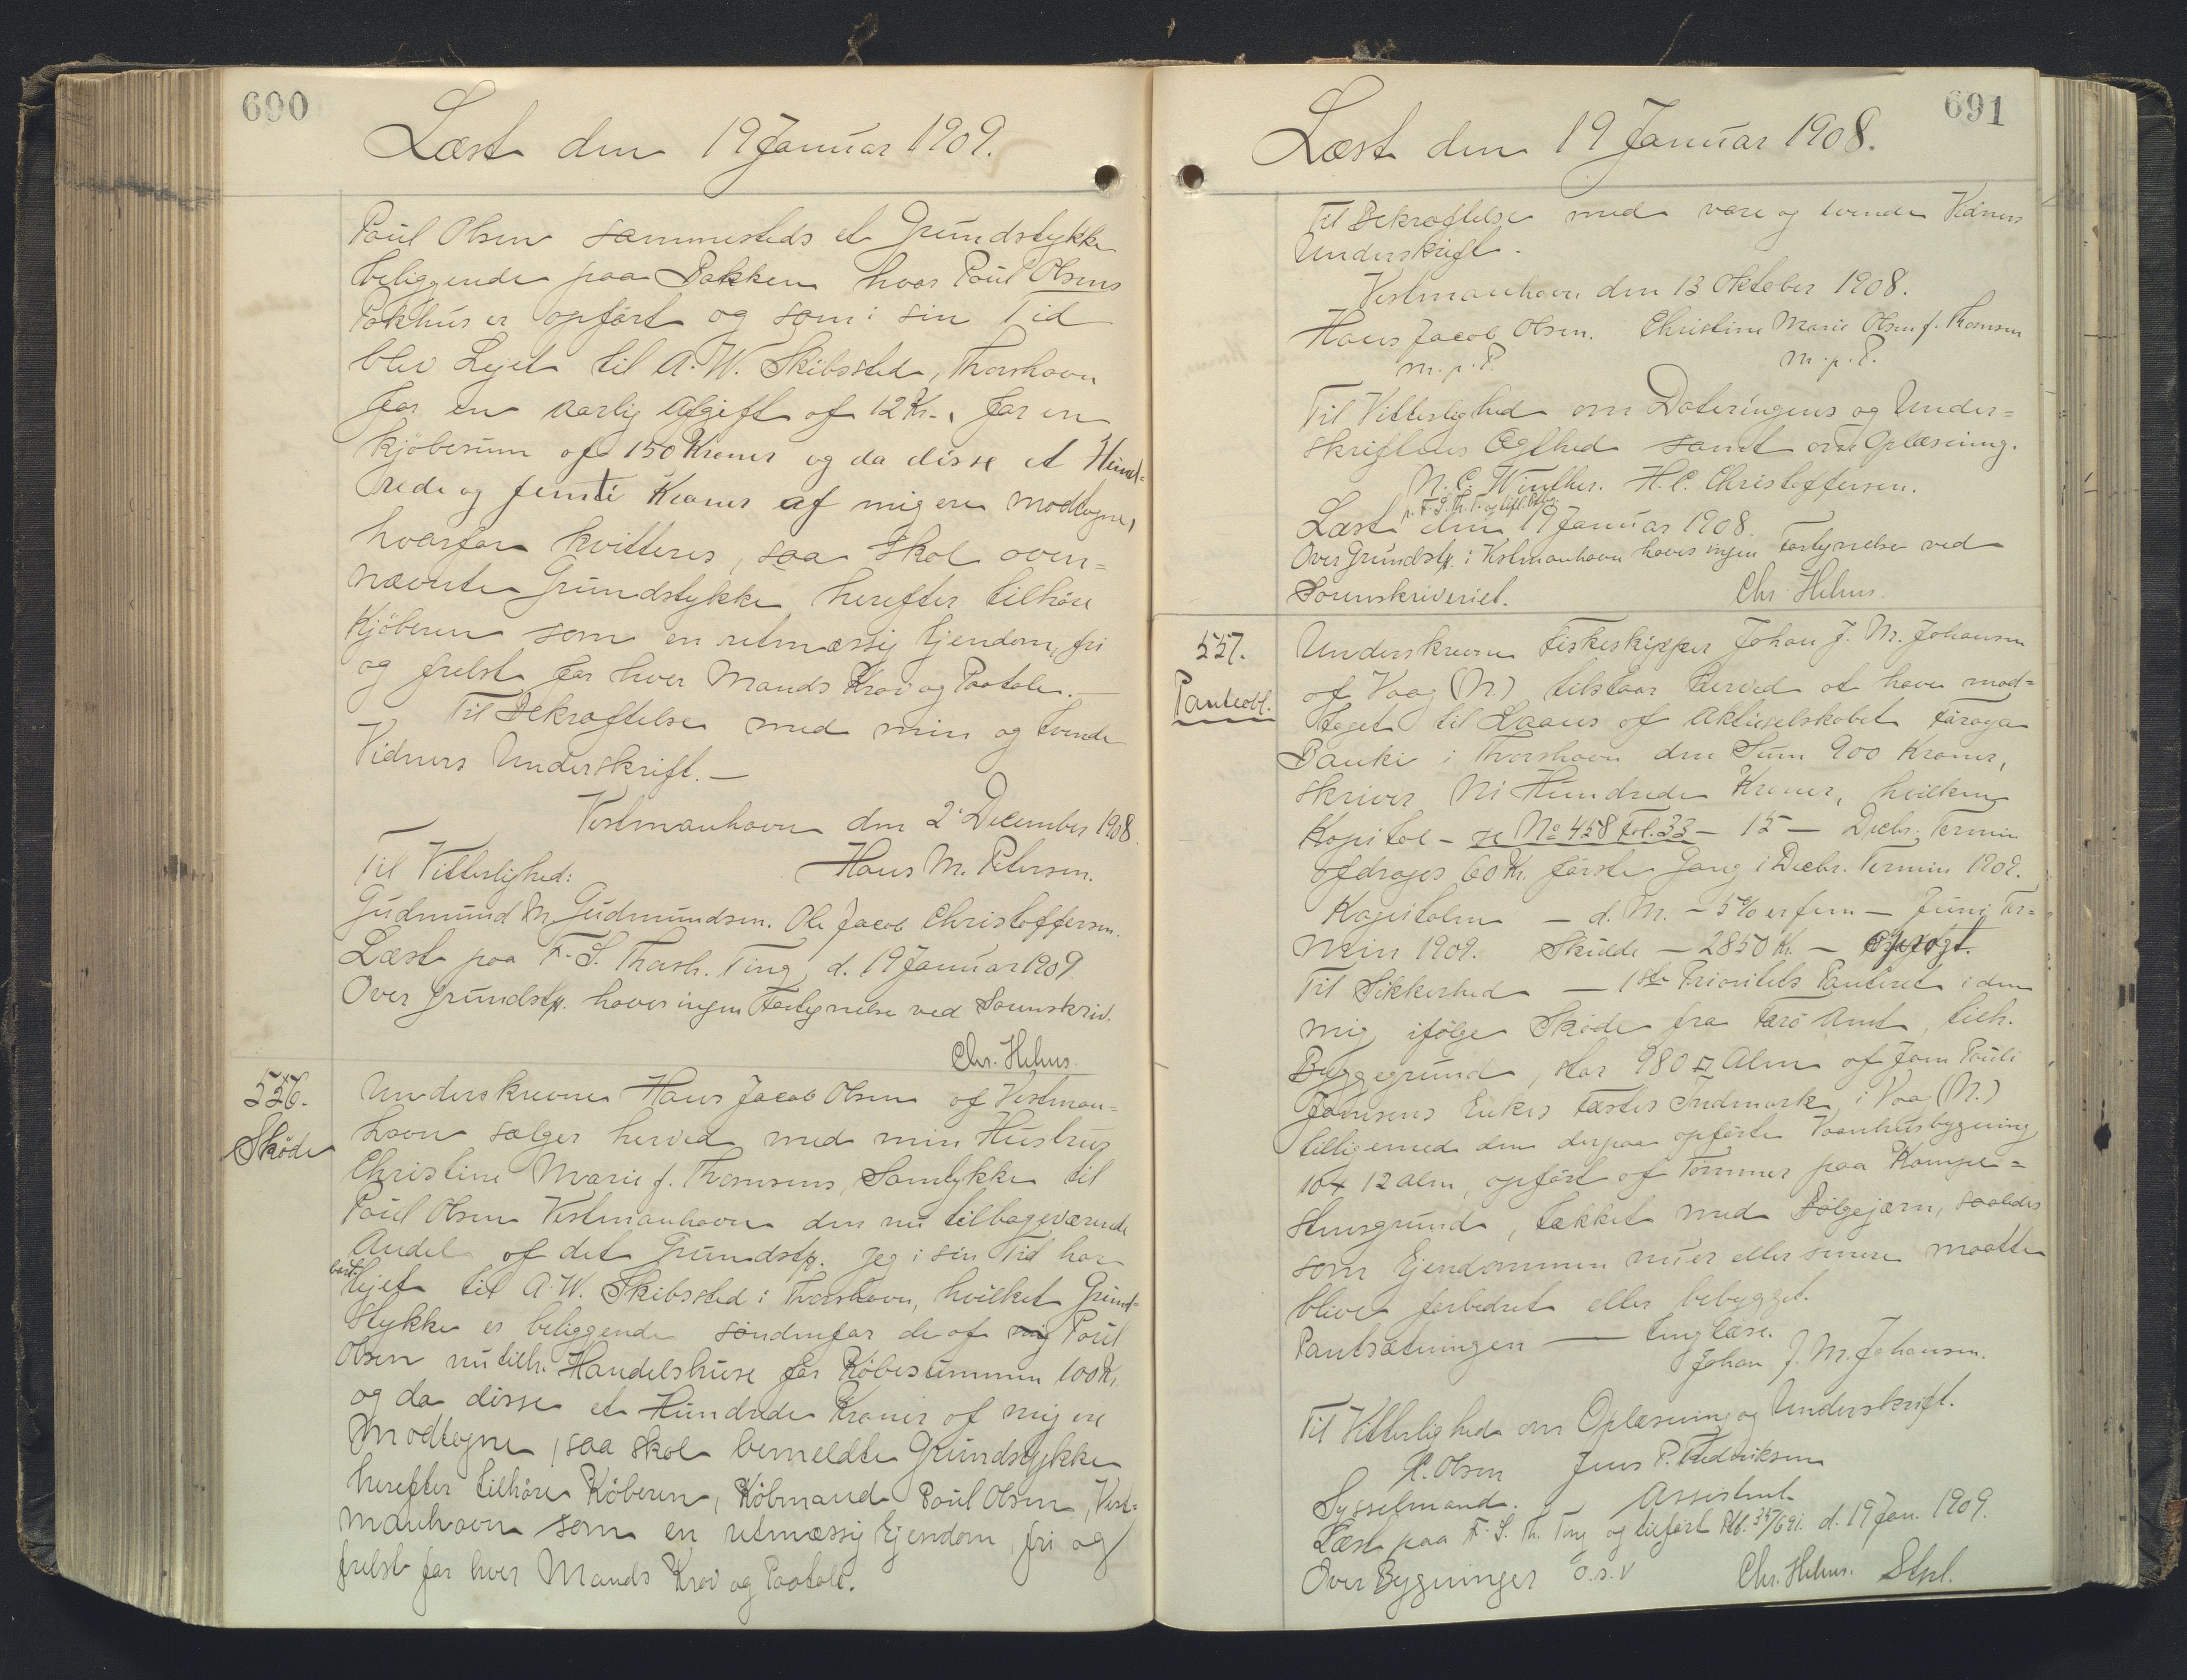 690
Læst den 19 Januar 1909.
Poul Olsen sammesteds et Grundstykke
beliggende paa Bakken hvor Poul Olsens
Pakhus er opført og som i sin Tid
blev Lejet til A. W. Skibssted, Thorshavn
for en aarlig Afgift af 12 Kr., for en
Kjöbesum af 150 Kroner og da disse et Hund-
rede og femti Kroner af mig ere modtagne,
hvorfor kvitteres, saa skal oven-
nævnte Grundstykke herefter tilhøre
Kjöberen som en retmæssig Ejendom, fri
og frelst for hver Mands Krav og Paatale.—
Til Bekræftelse med min og tvende
Vidners Underskrift.—
Vestmanhavn den 2' December 1908.
Til Vitterlighed: Hans M. Petersen.
Gudmund M Gudmundsen. Ole Jacob Christoffersen.
Læst paa F. S. Thorsh. Ting d. 19 Januar 1909
Over Grundstk. haves ingen Forsyn​else ved Sorenskriv.
Chr. Helms.
556.
Skøde
Underskrevne Hans Jacob Olsen af Vestman-
havn sælger herved med min Hustrus
Christine Marie f. Thomsens, Samtykke til
Poul Olsen Vestmanhavn den nu tilbageværende
Andel af det Grundstk. jeg i sin Tid har
bort-
lejet til A. W. Skibssted i Thorshavn, hvilket Grund-
stykke er beliggende søndenfor de af mig Poul
Olsen nu tilh. Handelshuse for Købesummen 100 Kr.
og da disse et Hundrede Kroner af mig ere
Modtagne, saa skal bemeldte Grundstykke
herefter tilhøre Køberen, Købmand Poul Olsen, Vest-
manhavn som en retmæssig Ejendom, fri og
frelst for hver Mands Krav og Paatale.
691
Læst den 19 Januar 1908.
Til Bekræftelse med vore og tvende Vidners
Underskrift.
Vestmanhavn den 13 Oktober 1908.
Hans Jacob Olsen. Christine Marie Olsen f. Thomsen
m. p. P. m. p. P.
Til Vitterlighed om Dateringens og Under-
skriftens Ægthed samt om Oplæsning.
N. C. Winther. H. C. Christoffersen.
p. F. S. Th. T. og
Læst den 19 Januar 1908.
Over Grundstk. i Vestmanhavn haves ingen Forsynelse ved
Sorenskriveriet. Chr. Helms.
557.
Panteobl.
Underskrevne Fiskeskipper Johan J. M. Johansen
af Vaag (N.) tilstaar herved at have mod-
taget til Laans af Aktieselskabet Føroya
Banki i Thorshavn den Sum 900 Kroner,
skriver Ni Hundrede Kroner, hvilken
Kapital - se No 458 Fol. 33 - 15 - Decbr. Termin
afdrages 60 Kr. første Gang i Decbr. Termin 1909.
Kapitalen - d. M. - 5% er fem - Juni Ter-
min 1909. Skulde - 2850 Kr. - opsagt.
Til Sikkerhed - 1ste Prioritets Panteret i den
mig ifølge Skøde fra Færø Amt, tilh.
Byggegrund, stor 980 □ Alen af Joen Pauli
Joensens Enkes Fæstes Indmark i Vaag (N.)
tilligemed den derpaa opførte Vaanhusbygning
10 x 12 Alen, opført af Tømmer paa Kampe-
stensgrund, tækket med Bølgejærn, saaledes
som Ejendommen nu er eller senere maatte
blive forbedret eller bebygget.
Pantsætningen — tinglæse.
Johan J. M. Johansen.
Til Vitterlighed om Oplæsning og Underskrift.
P. Olsen Jens P. Fredriksen
Sysselmand. Assistent
Læst paa F. S. Th. Ting og tilført Rbl. 35/691. d. 19 Jan. 1909.
Over Bygninger o.s.v Chr. Helms. Stpl.